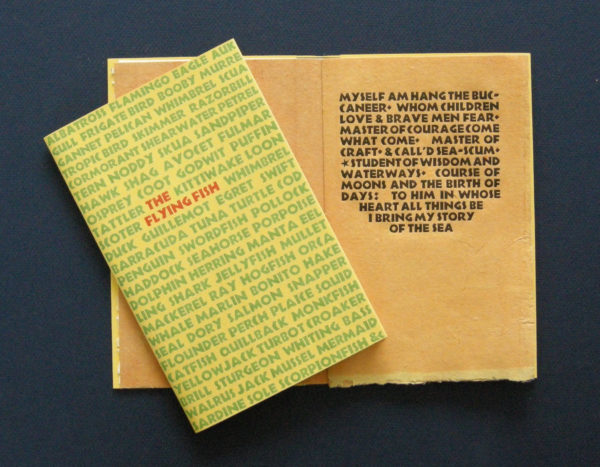 ALBATROSS FLAMINGO EAGLE AUK
GULL FRIGATE BIRD BOOBY MURRE
GANNET PELICAN WHIMBREL
TROPICBIRD SKIMMER RAZORBILL
TERN NODDY SHEARWATER PETREL
HAWK SHAG SANDPIPER
OSPREY COOT AVOCET FULMAR
TATTLER GODWIT PUFFIN
THE LOON
FLYING FISH WHIMBREL
SCOTER
DUCK GUILLEMOT EGRET SWIFT
BARRACUDA TUNA TURTLE COD
PENGUIN SWORDFISH POLLOCK
HADDOCK SEAHORSE PORPOISE
DOLPHIN HERRING MANTA EEL
LING SHARK JELLYFISH MULLET
MACKEREL RAY HOGFISH ORCA
WHALE MARLIN BONITO MAKO
SEAL DORY SALMON SNAPPER
FLOUNDER PERCH PLAICE SQUID
CATFISH QUILLBACK MONKFISH
YELLOWJACK TURBOT CROAKER
BRILL STURGEON WHITING BASS
WALRUS JACK MUSSEL MERMAID
SARDINE SOLE SCORPIONFISH &
MYSELF AM HANG THE BUC-
CANEER• WHOM CHILDREN
LOVE & BRAVE MEN FEAR•
MASTER OF COURAGE COME
WHAT COME• MASTER OF
CRAFT• & CALL'D SEA-SCUM•
★STUDENT OF WISDOM AND
WATERWAYS• COURSE OF
MOONS AND THE BIRTH OF
DAYS: TO HIM IN WHOSE
HEART ALL THINGS BE
I BRING MY STORY
OF THE SEA